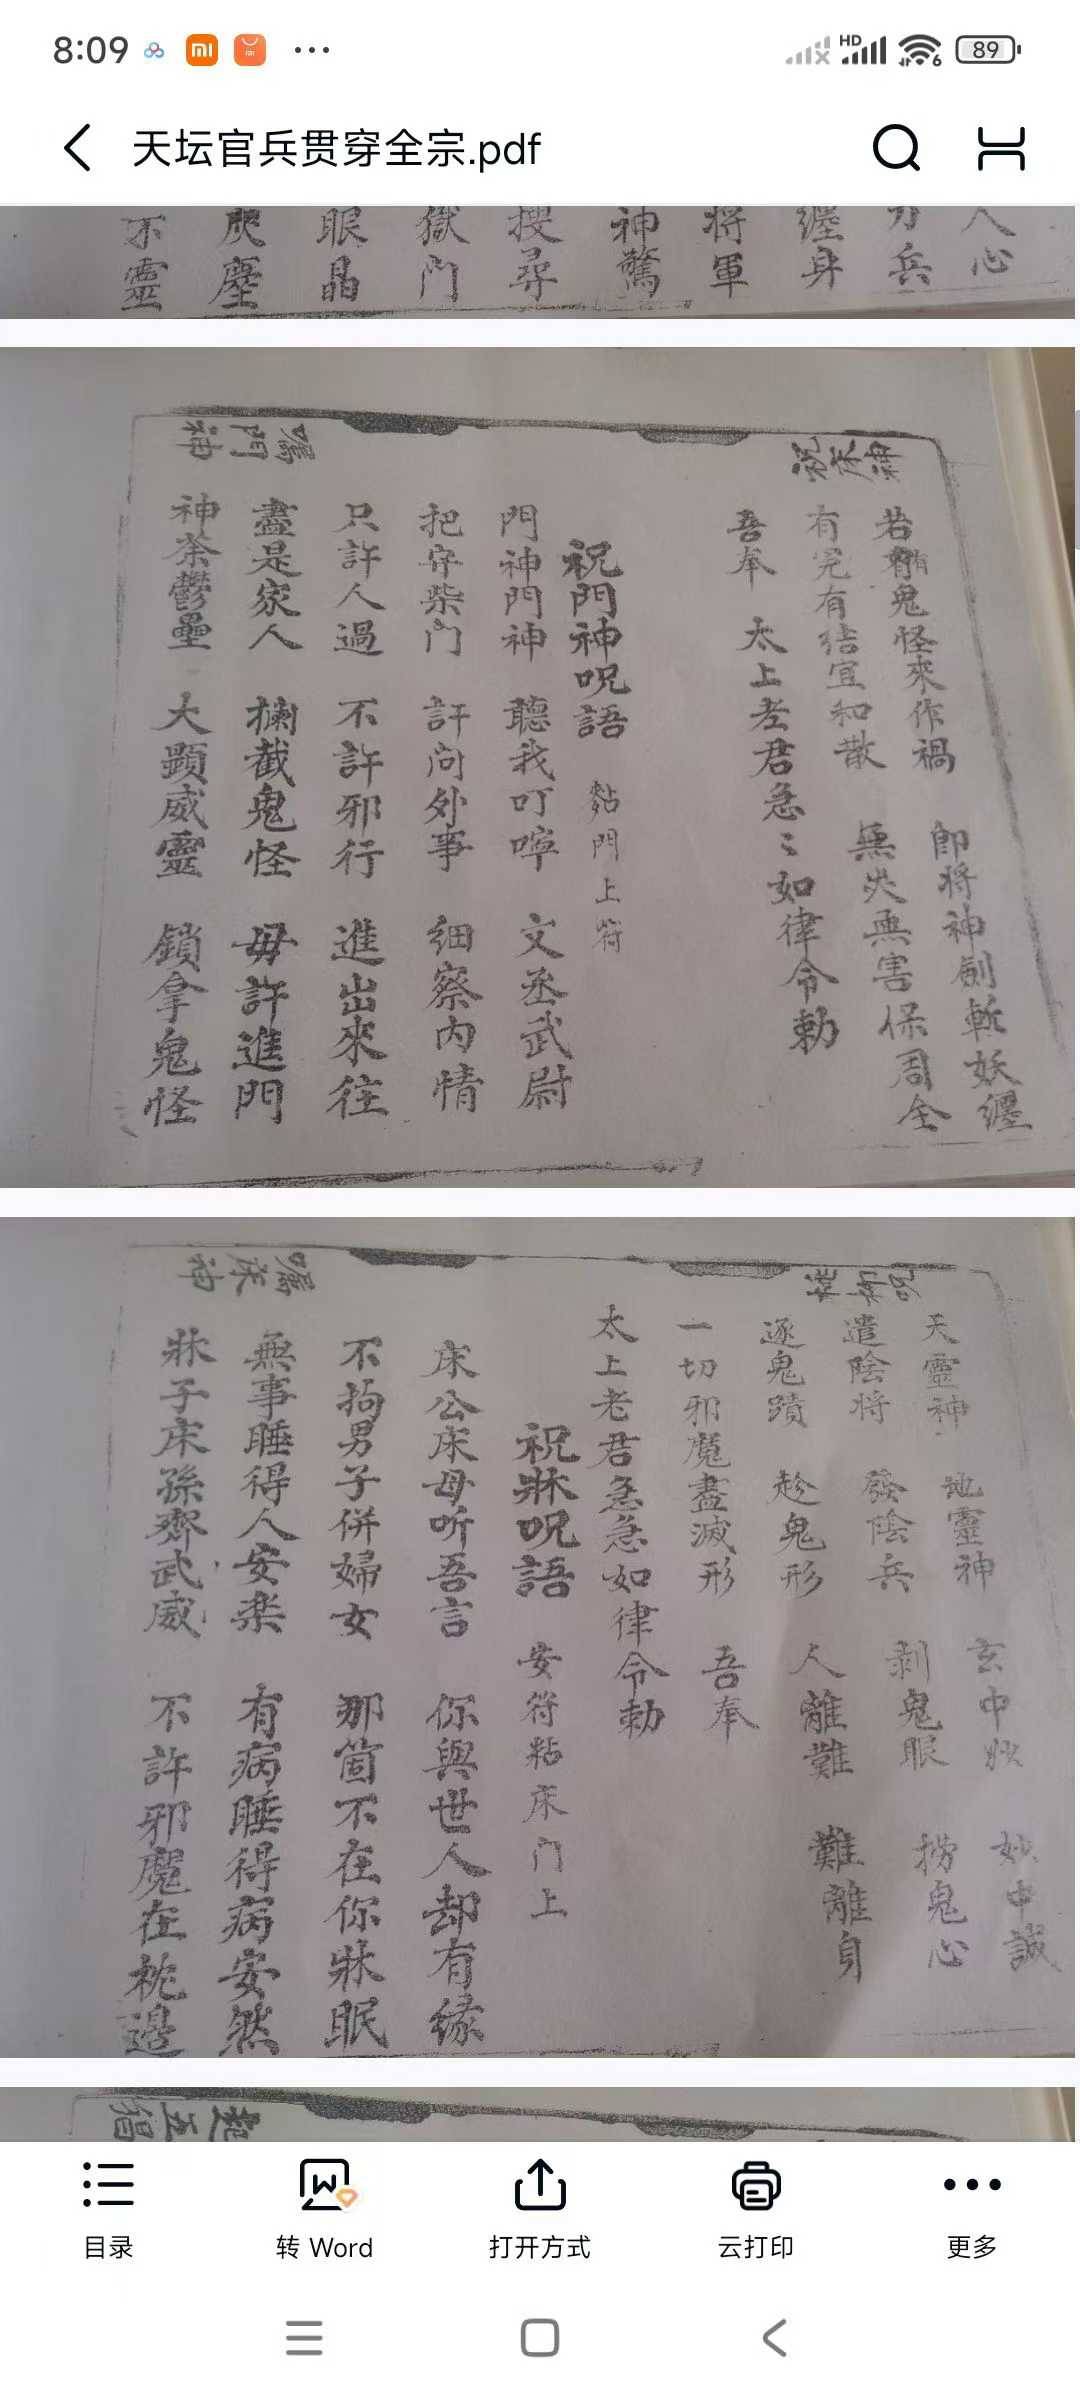 8:09
HD
6
89
天坛官兵贯穿全宗.pdf
人心
分兵
纏身
将軍
神驚
搜尋
獄門
眼晶
塵
不靈
若有鬼怪來作禍 即将神劍斬妖纏
有冤有结宜和散 無災無害保周全
吾奉 太上老君急〻如律令勅
祝門神呪語 黏門上符
門神門神 聽我叮嚀 文丞武尉
把守柴门 訐问外事 细察内情
只許人過 不許邪行 進出來往
盡是家人 攔截鬼怪 毋許進門
神荼鬱壘 大顕威靈 鎖拿鬼怪
嘱門神
天靈神 地靈神 玄中妙 妙中誠
遣陰将 發陰兵 剥鬼眼 捞鬼心
逐鬼蹟 趁鬼形 人離難 難離身
一切邪魔盡滅形 吾奉
太上老君急急如律令勅
祝牀呪語 安符粘床门上
床公床母听吾言 你與世人却有缘
不拘男子併婦女 那箇不在你牀眠
無事睡得人安楽 有病睡得病安然
牀子床孫齊武威 不許邪魔在枕邉
嘱床神
目录
转 Word
打开方式
云打印
更多